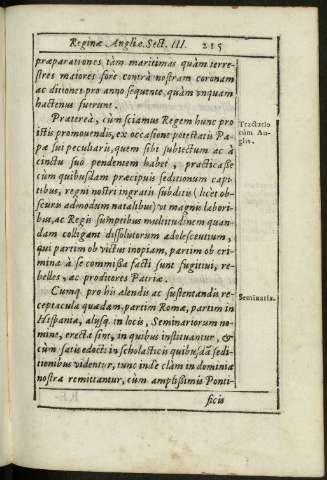 Reginæ Angliæ. Sect. III. 215
præparationes tàm maritimas quàm terre-
stres maiores fore contrà nostram coronam
ac ditiones pro anno sequente, quàm ynquam
hactenus fuerunt.
Prætereà, cùm sciamus Regem hunc pro
istis promouendis, ex occasione potestatis Pa-
pæ sui peculiaris, quem sibi subiectum ac à
cinctu suo pendentem habet, practicasse
cùm quibusdam præcipuis seditionum capi-
tibus, regni nostri ingratis subditis (licet ob-
scuris admodum natalibus) vt magnis labori-
bus, ac Regis sumptibus multitudinem quan-
dam colligant dissolutorum adolescentium,
qui partim ob victus inopiam, partim ob cri-
mina à se commissa facti sunt fugitiui, re-
belles, ac proditores Patriæ.
Cumq. pro his alendis ac sustentandis re-
ceptacula quædam, partim Romæ, partim in
Hispania, alijsq. in locis, Seminariorum no-
mine, erecta sint, in quibus instituantur, &
cùm satis edocti in scholasticis quibusdã sedi-
tionibus videntur, tunc inde clàm in dominia
nostra remittantur, cùm amplissimis Ponti-
ficis
Tractatio
cùm An-
glis.
Seminaria.